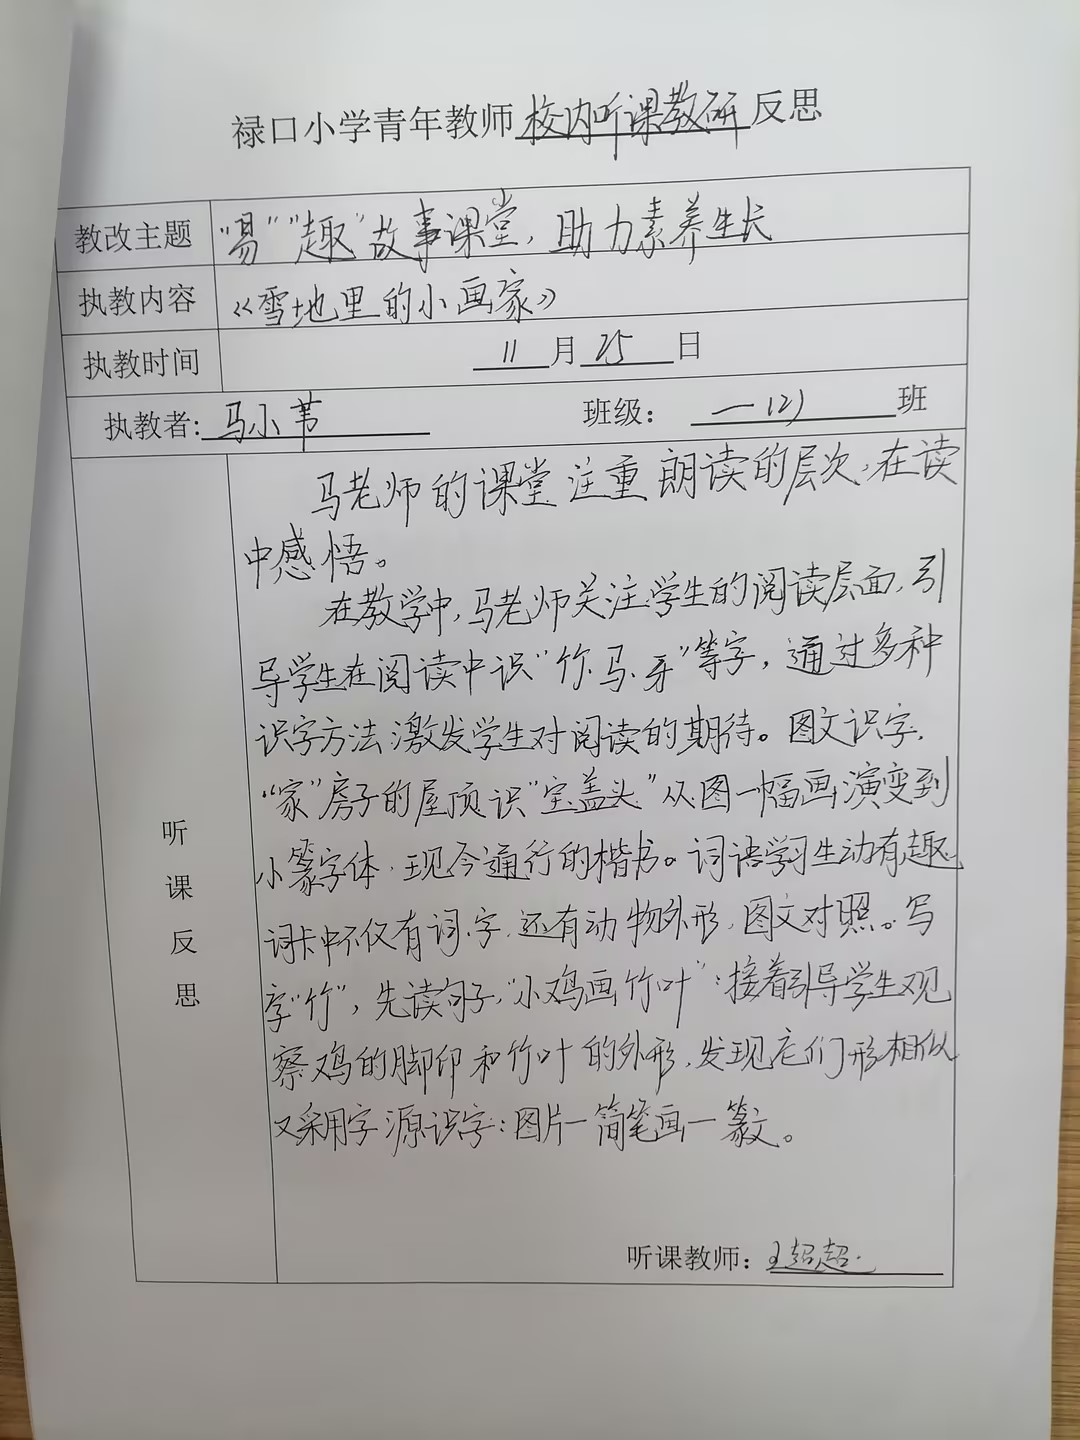 禄口小学青年教师校内听课教研反思
教改主题 “易”“趣”故事课堂，助力素养生长
执教内容 《雪地里的小画家》
执教时间 11月25日
执教者：马小苇 班级：一(2)班
马老师的课堂注重朗读的层次，在读
中感悟。
在教学中，马老师关注学生的阅读层面，引
导学生在阅读中识“竹、马、牙”等字，通过多种
识字方法激发学生对阅读的期待。图文识字，
“家”房子的屋顶识“宝盖头”从图一幅画演变到
小篆字体，现今通行的楷书。词语学习生动有趣，
词卡中不仅有词、字，还有动物外形，图文对照。写
字“竹”，先读句子，“小鸡画竹叶”；接着引导学生观
察鸡的脚印和竹叶的外形，发现它们形相似，
又采用字源识字：图片—简笔画—篆文。
听课反思
听课教师：王超超